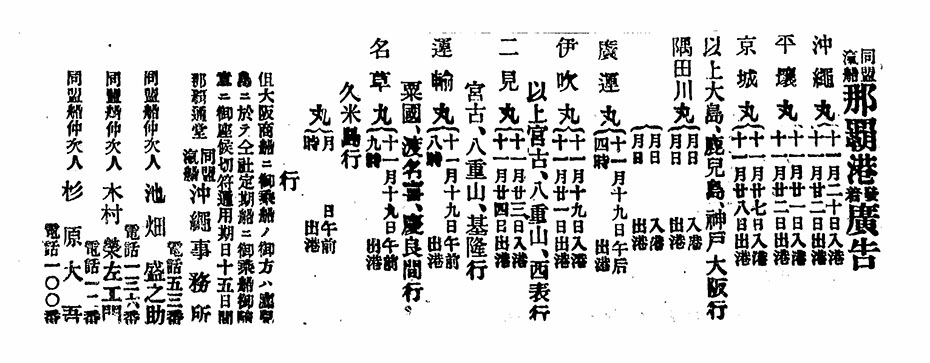 同盟汽船那覇港發着廣告
沖繩丸
十一月二十日入港
十一月廿二日出港
平壤丸
十一月廿一日入港
十一月廿二日出港
京城丸
十一月廿七日入港
十一月廿八日出港
以上大島、鹿兒島、神戸大阪行
隅田川丸
月日 入港
月日 出港
廣運丸
十一月十九日午后
四時 出港
伊吹丸
十一月十九日入港
十一月廿一日出港
以上宮古、八重山、西表行
二見丸
十一月廿三日入港
十一月廿四日出港
宮古、八重山、基隆行
運輸丸
十一月十九日午前
八時 出港
粟國、渡名喜、慶良間行
名草丸
十一月十九日午前
九時 出港
久米島行
丸
月 日午前
時 出港
行
但大阪商船ニ御乘船ノ御方ハ鹿兒
島ニ於テ仝社定期船ニ御乘船御隨
意ニ御座候切符通用期日十五日間
那覇通堂 同盟汽船 沖繩事務所
電話五三番
同盟船仲次人 池畑盛之助
電話一三六番
同盟船仲次人 木村榮左エ門
電話一一二番
同盟船仲次人 杉原大吾
電話一〇〇番